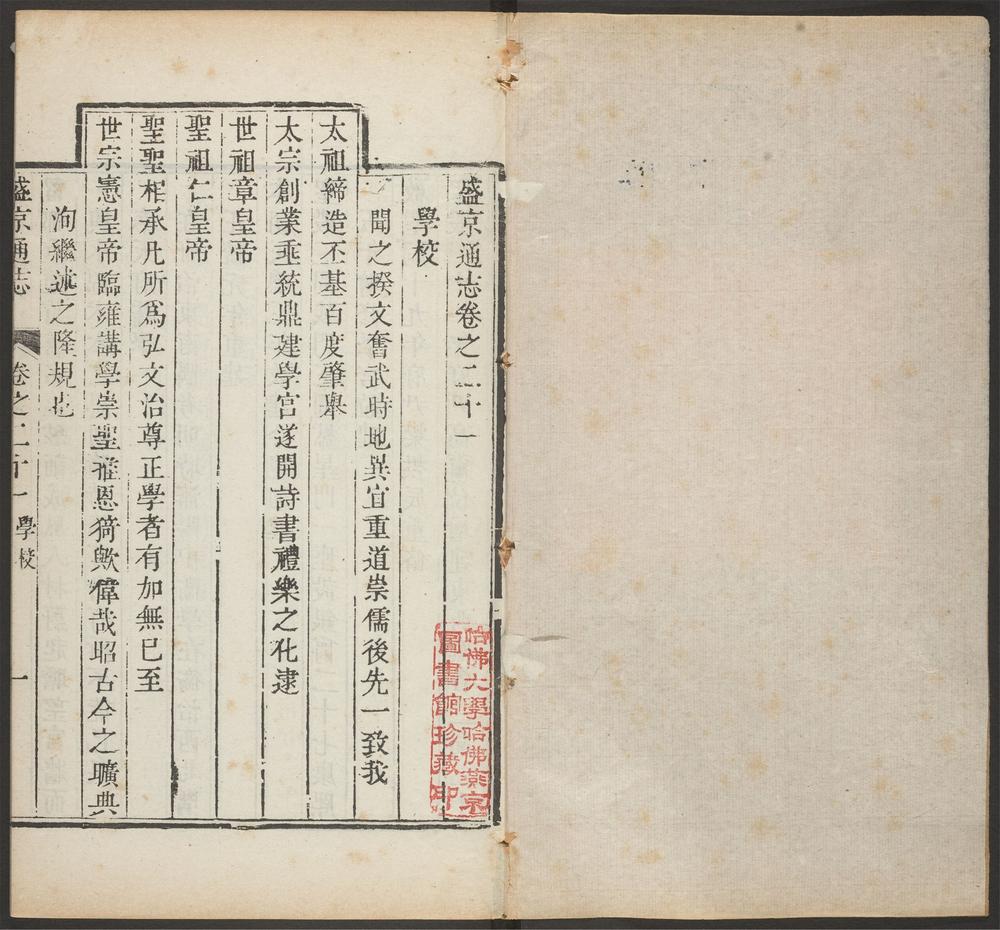 盛京通志卷之二十一
學校
聞之揆文奮武時地異宜重道崇儒後先一致我
太祖締造丕基百度肇舉
太宗創業垂統鼎建學宫遂開詩書禮樂之化逮
世祖章皇帝
聖祖仁皇帝
聖聖相承凡所爲弘文治尊正學者有加無已至
世宗憲皇帝臨雍講學崇聖推恩猗歟偉哉昭古今之曠典
洵繼述之隆規也
盛京通志
卷之二十一 學校
一
哈佛大學哈佛燕京
圖書館珍藏印